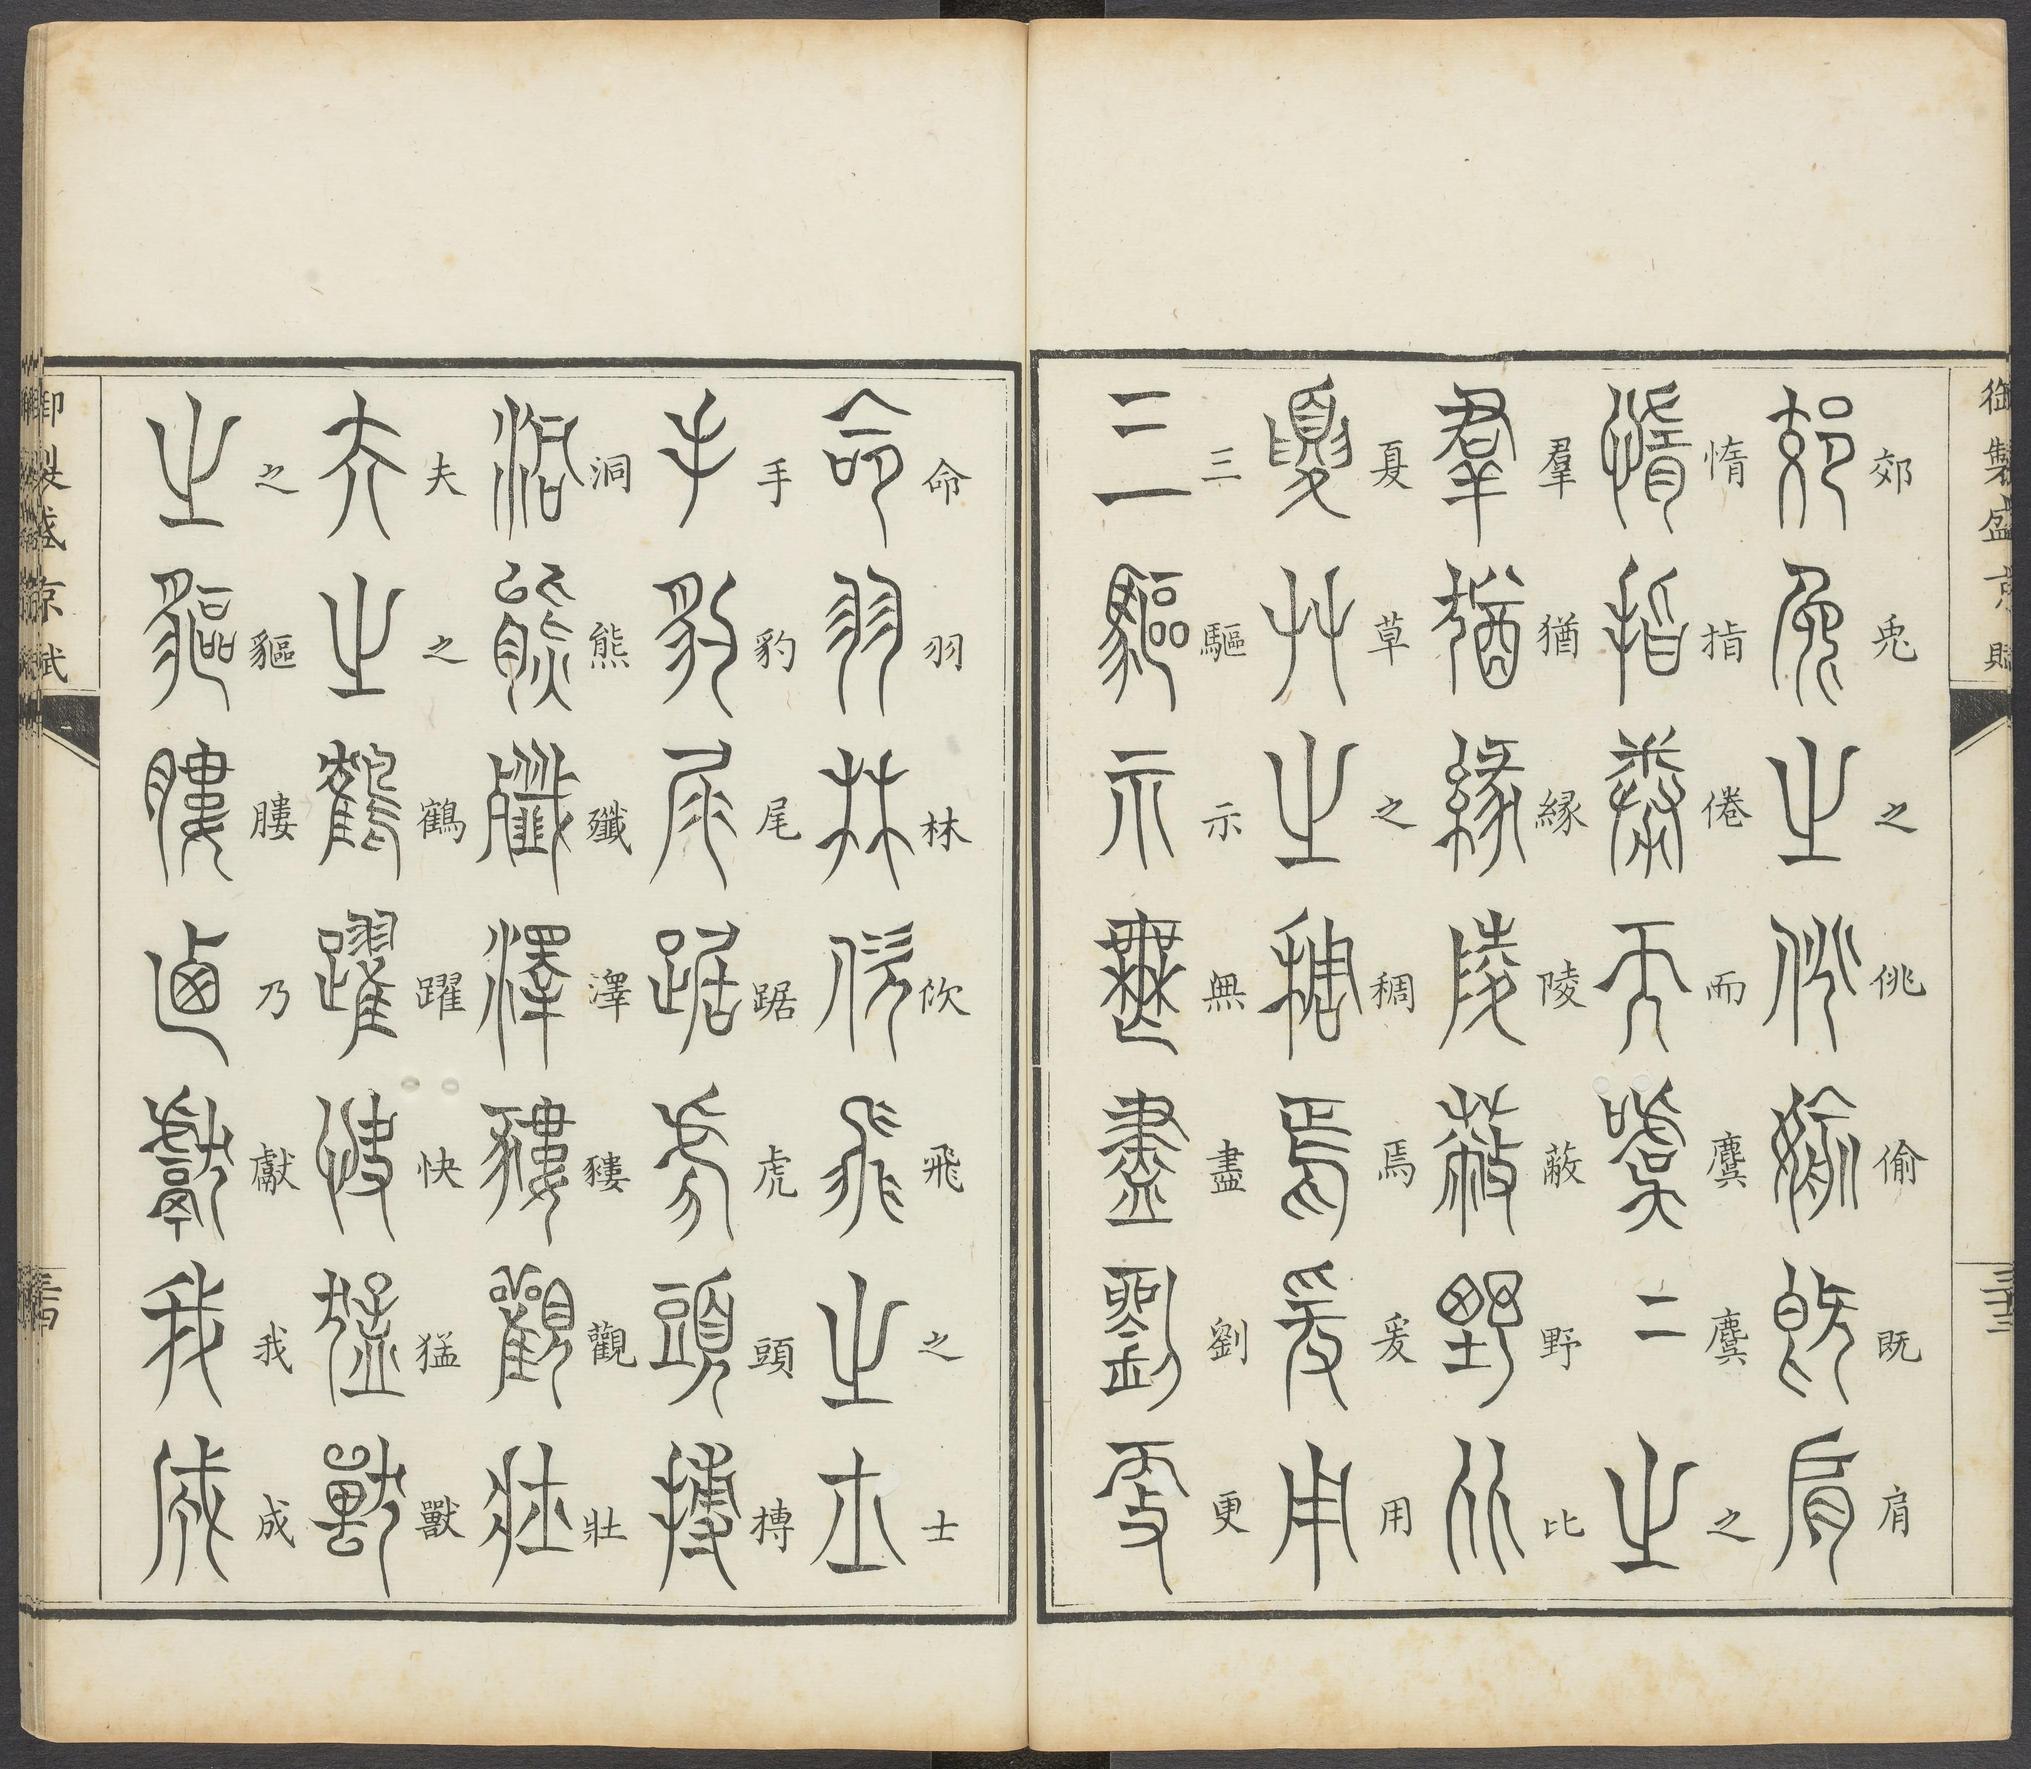 御製盛京賦
三十三
郊兎之佻偷既肩
惰指倦而麌麌之
羣猶緣陵蔽野比
夏草之稠焉爰用
三驅示無盡劉更
命羽林佽飛之士
手豹尾踞虎頭摶
洞熊殱澤貗觀壯
夫之鶴躍快猛獸
之貙膢乃獻我成
御製盛京賦
三十四